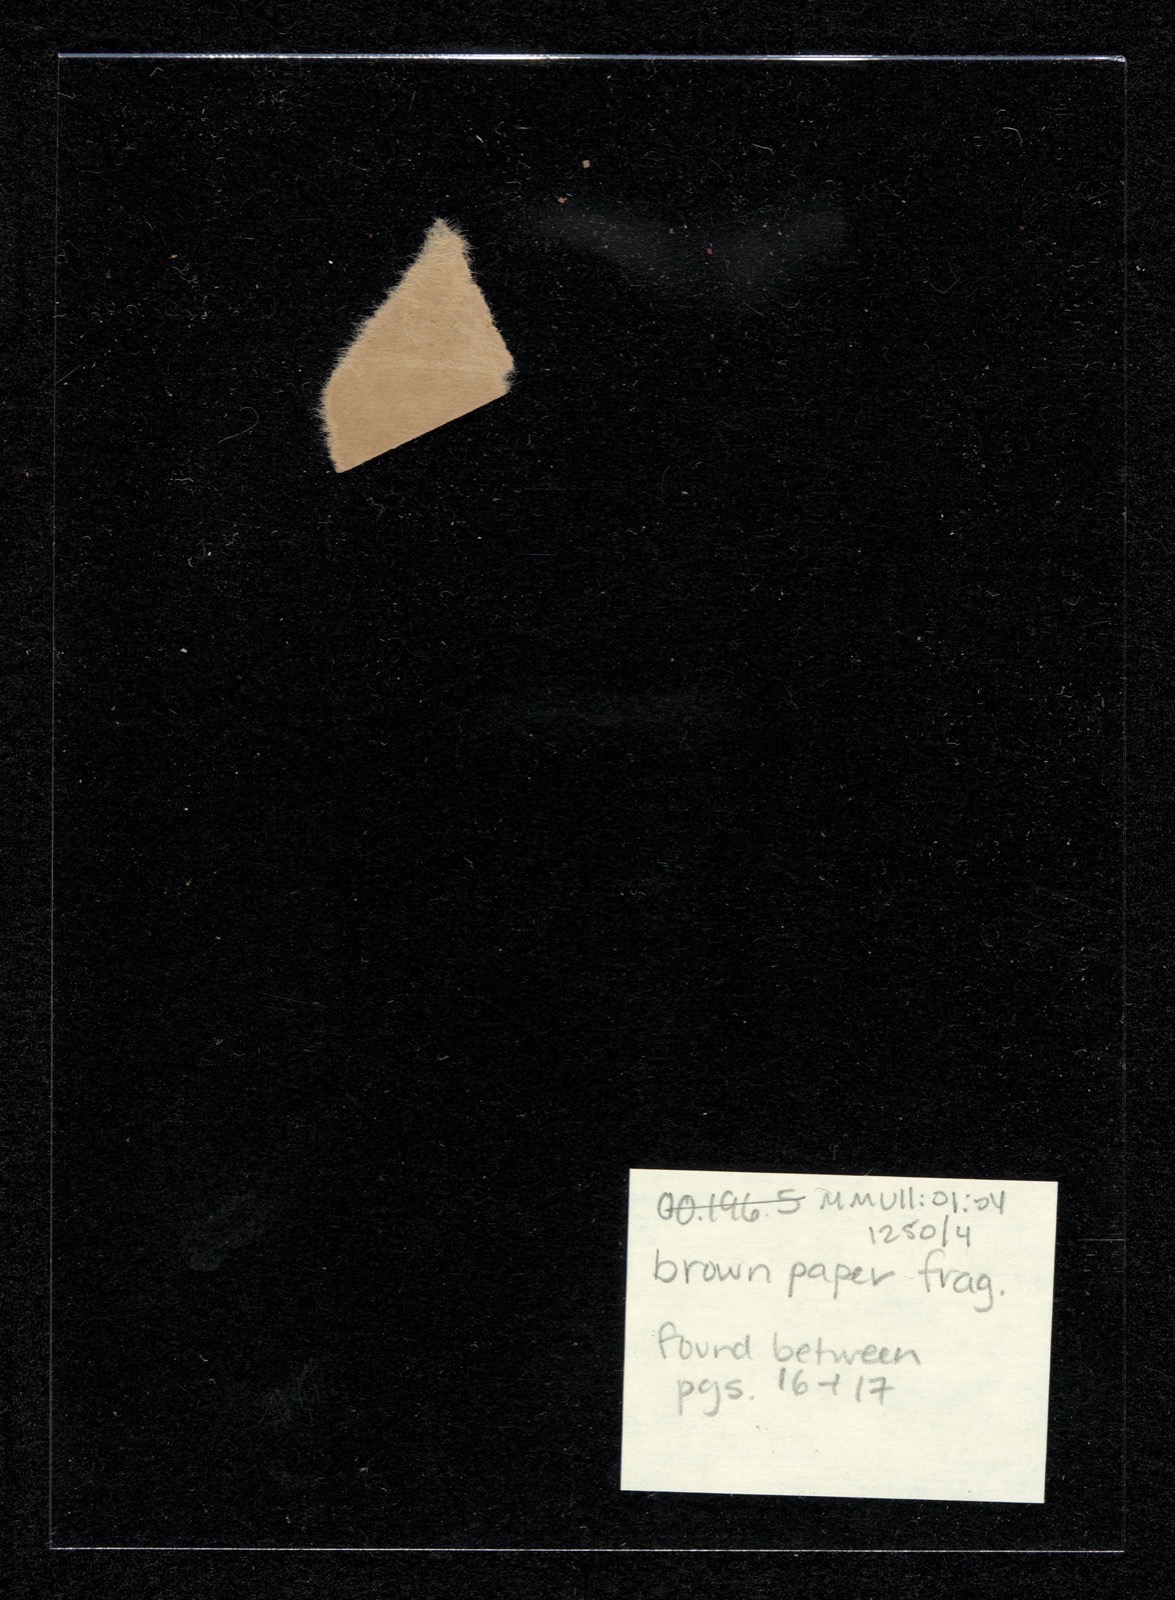 00.196.5 MMUll:01:04
1250/4
brown paper frag.
found between
pgs. 16+17